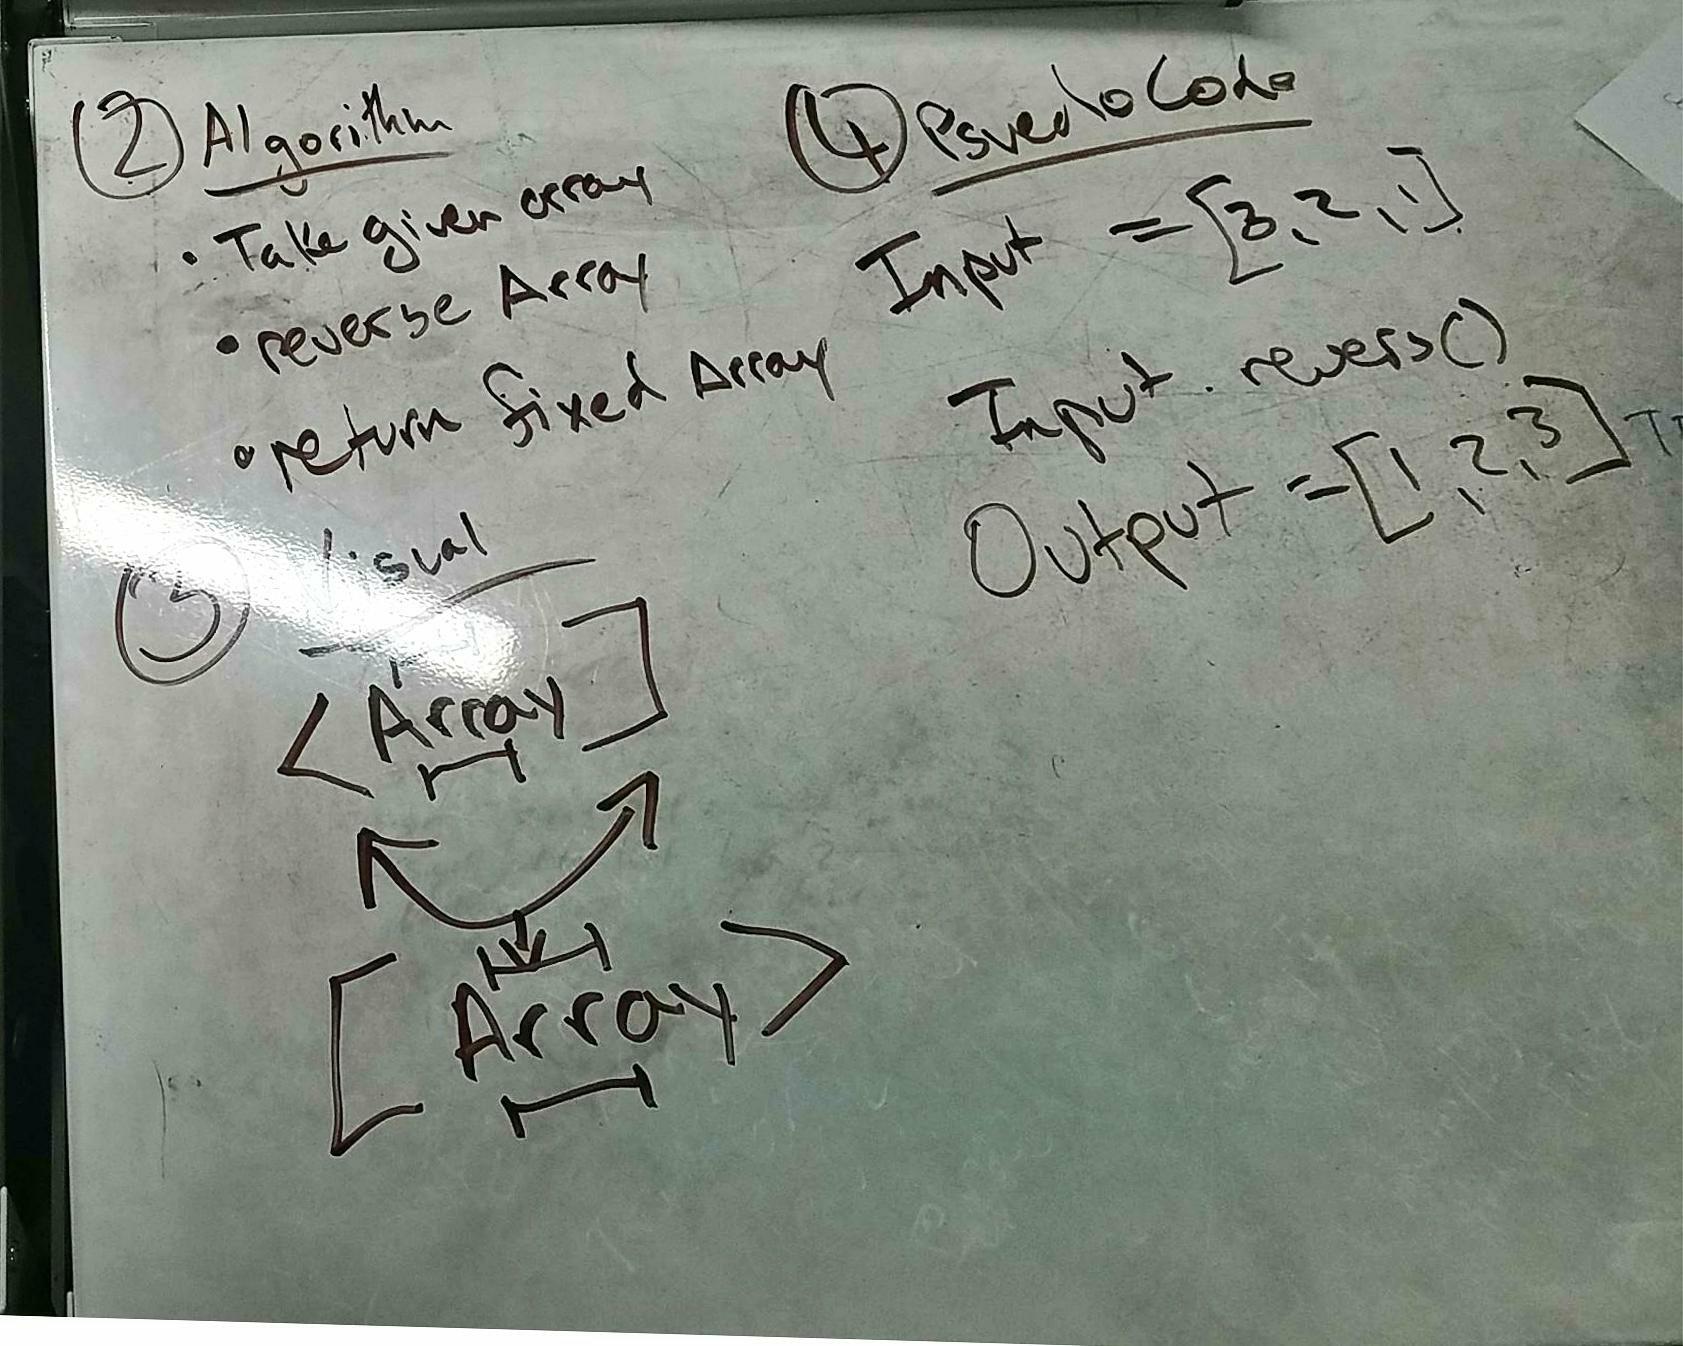 ② Algorithm
• Take given array
• reverse Array
• return fixed Array
③ Visual
< Array ]
[ Array >
④ Psuedo Code
Input = [3,2,1]
Input.revers()
Output = [1,2,3]